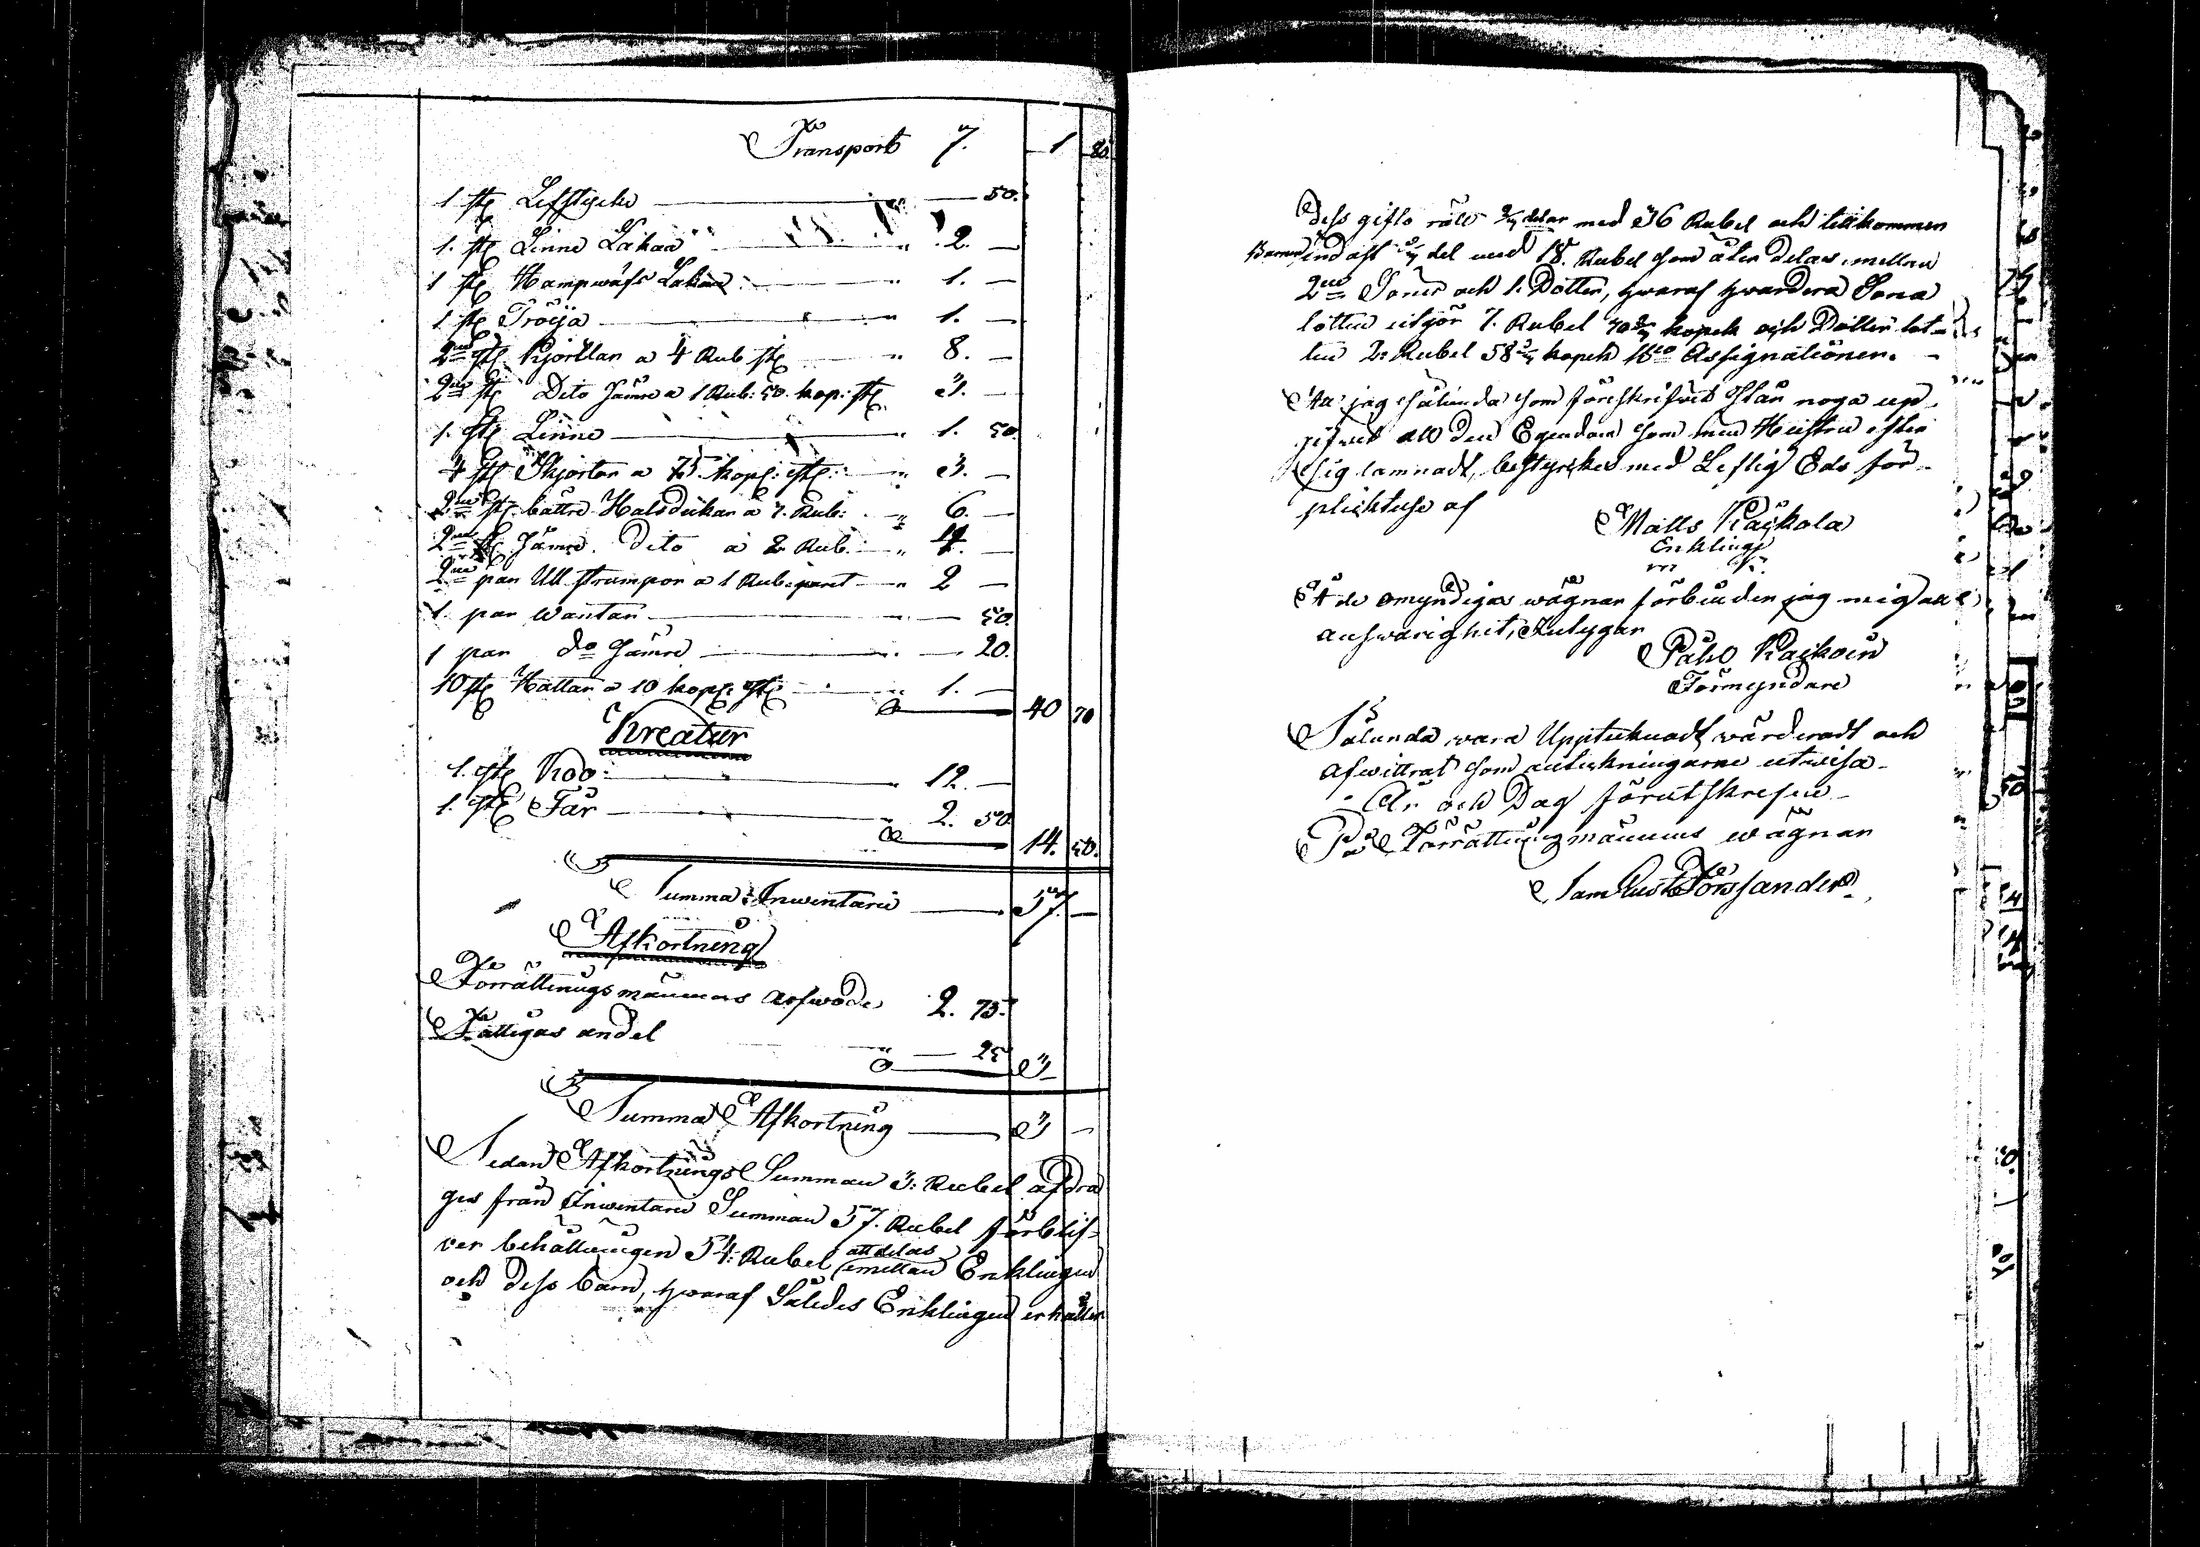 Transport 7. 1 80.
1 st Lifstycke " — 50.
1. st Linne Lakan " 2. —
1 st Hampwäfs Lakan " 1. —
1 st Tröija " 1. —
2ne st Kjortlar a 4 Rub st " 8. —
2ne st Dito Sämre a 1 Rub: 50. kop: st 3. —
1. st Linne " 1. 50
4 st Skjortor a 75. kop: st: " 3. —
2ne st bättre Halsdukar a 3. Rub: " 6. —
2ne st Sämre Dito à 2 Rub. " 4. —
2ne par Ull strumpor a 1 Rub. paret " 2 —
1. par Wantar " — 50.
1 par do Sämre " — 20.
10 st Hattar a 10 kop: st " 1. —
40 70
Kreatur
1. st Koo: 12. —
1. st Får 2. 50
14. 50.
Summa Inventarii 57 —
Afkortning
Förrättningsmännens Arfwode 2. 75.
Fattigas andel " — 25
3
Summa Afkortning 3 —
Sedan Afkortnings Summan 3: Rubel afdra
ges från Inventarii Summan 57. Rubel förblif-
ver behållningen 54: Rubel att delas emellan Enklingen
och dess barn, hwaraf Således Enklingen erhåller
Dess gifto rätt 2/3 delar med 36 Rubel och tillkommer
Barnen endast 1/3 del med 18. Rubel som åter delas mellan
2ne Söner och 1. Dotter, hwaraf hwardera Sona
lotten utgör 7. Rubel kopek och Dotter lot-
ten 2. Rubel kopek Bco Assignationer. —
Att jag sålunda som föreskrifwit står noga up-
gifwit all den Egendom som min Hustru efter
sig lämnadt, bestyrkes med Liflig Eds för-
pliktelse af
Matts Kaikola
Enkling
Å de omyndigas wägnar förbinder jag mig all
answarighet, Intygar
Påhl Kaikoin
Förmyndare
Sålunda wara Upptecknadt, wärderadt och
afwittrat som anteckningarne utwisa
År och Dag förutskrefne
På Förrättningsmännens wägnar
Sam Gust Forssander